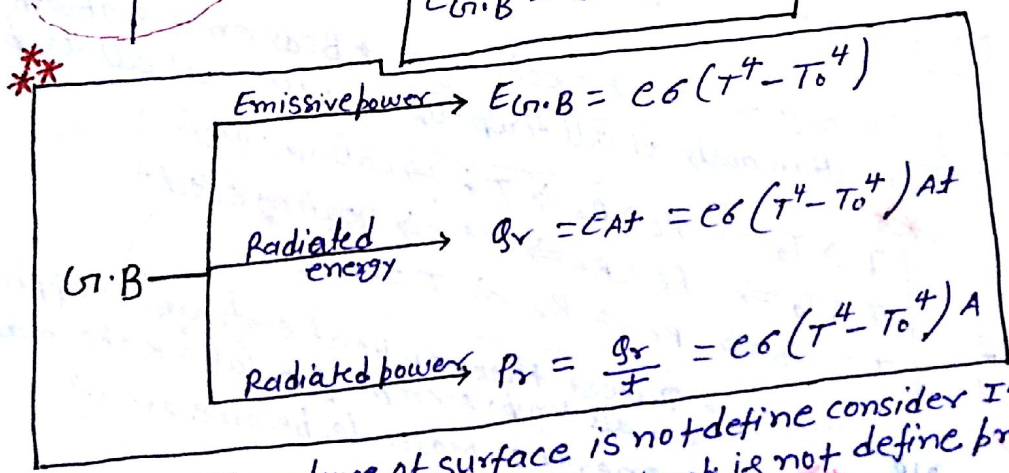 EG.B
Emissive power → EG.B = eσ(T⁴ - T₀⁴)
Radiated energy → Qr = EAt = eσ(T⁴ - T₀⁴)At
G.B
Radiated power → Pr = Qr/t = eσ(T⁴ - T₀⁴)A
of surface is not define consider
is not define